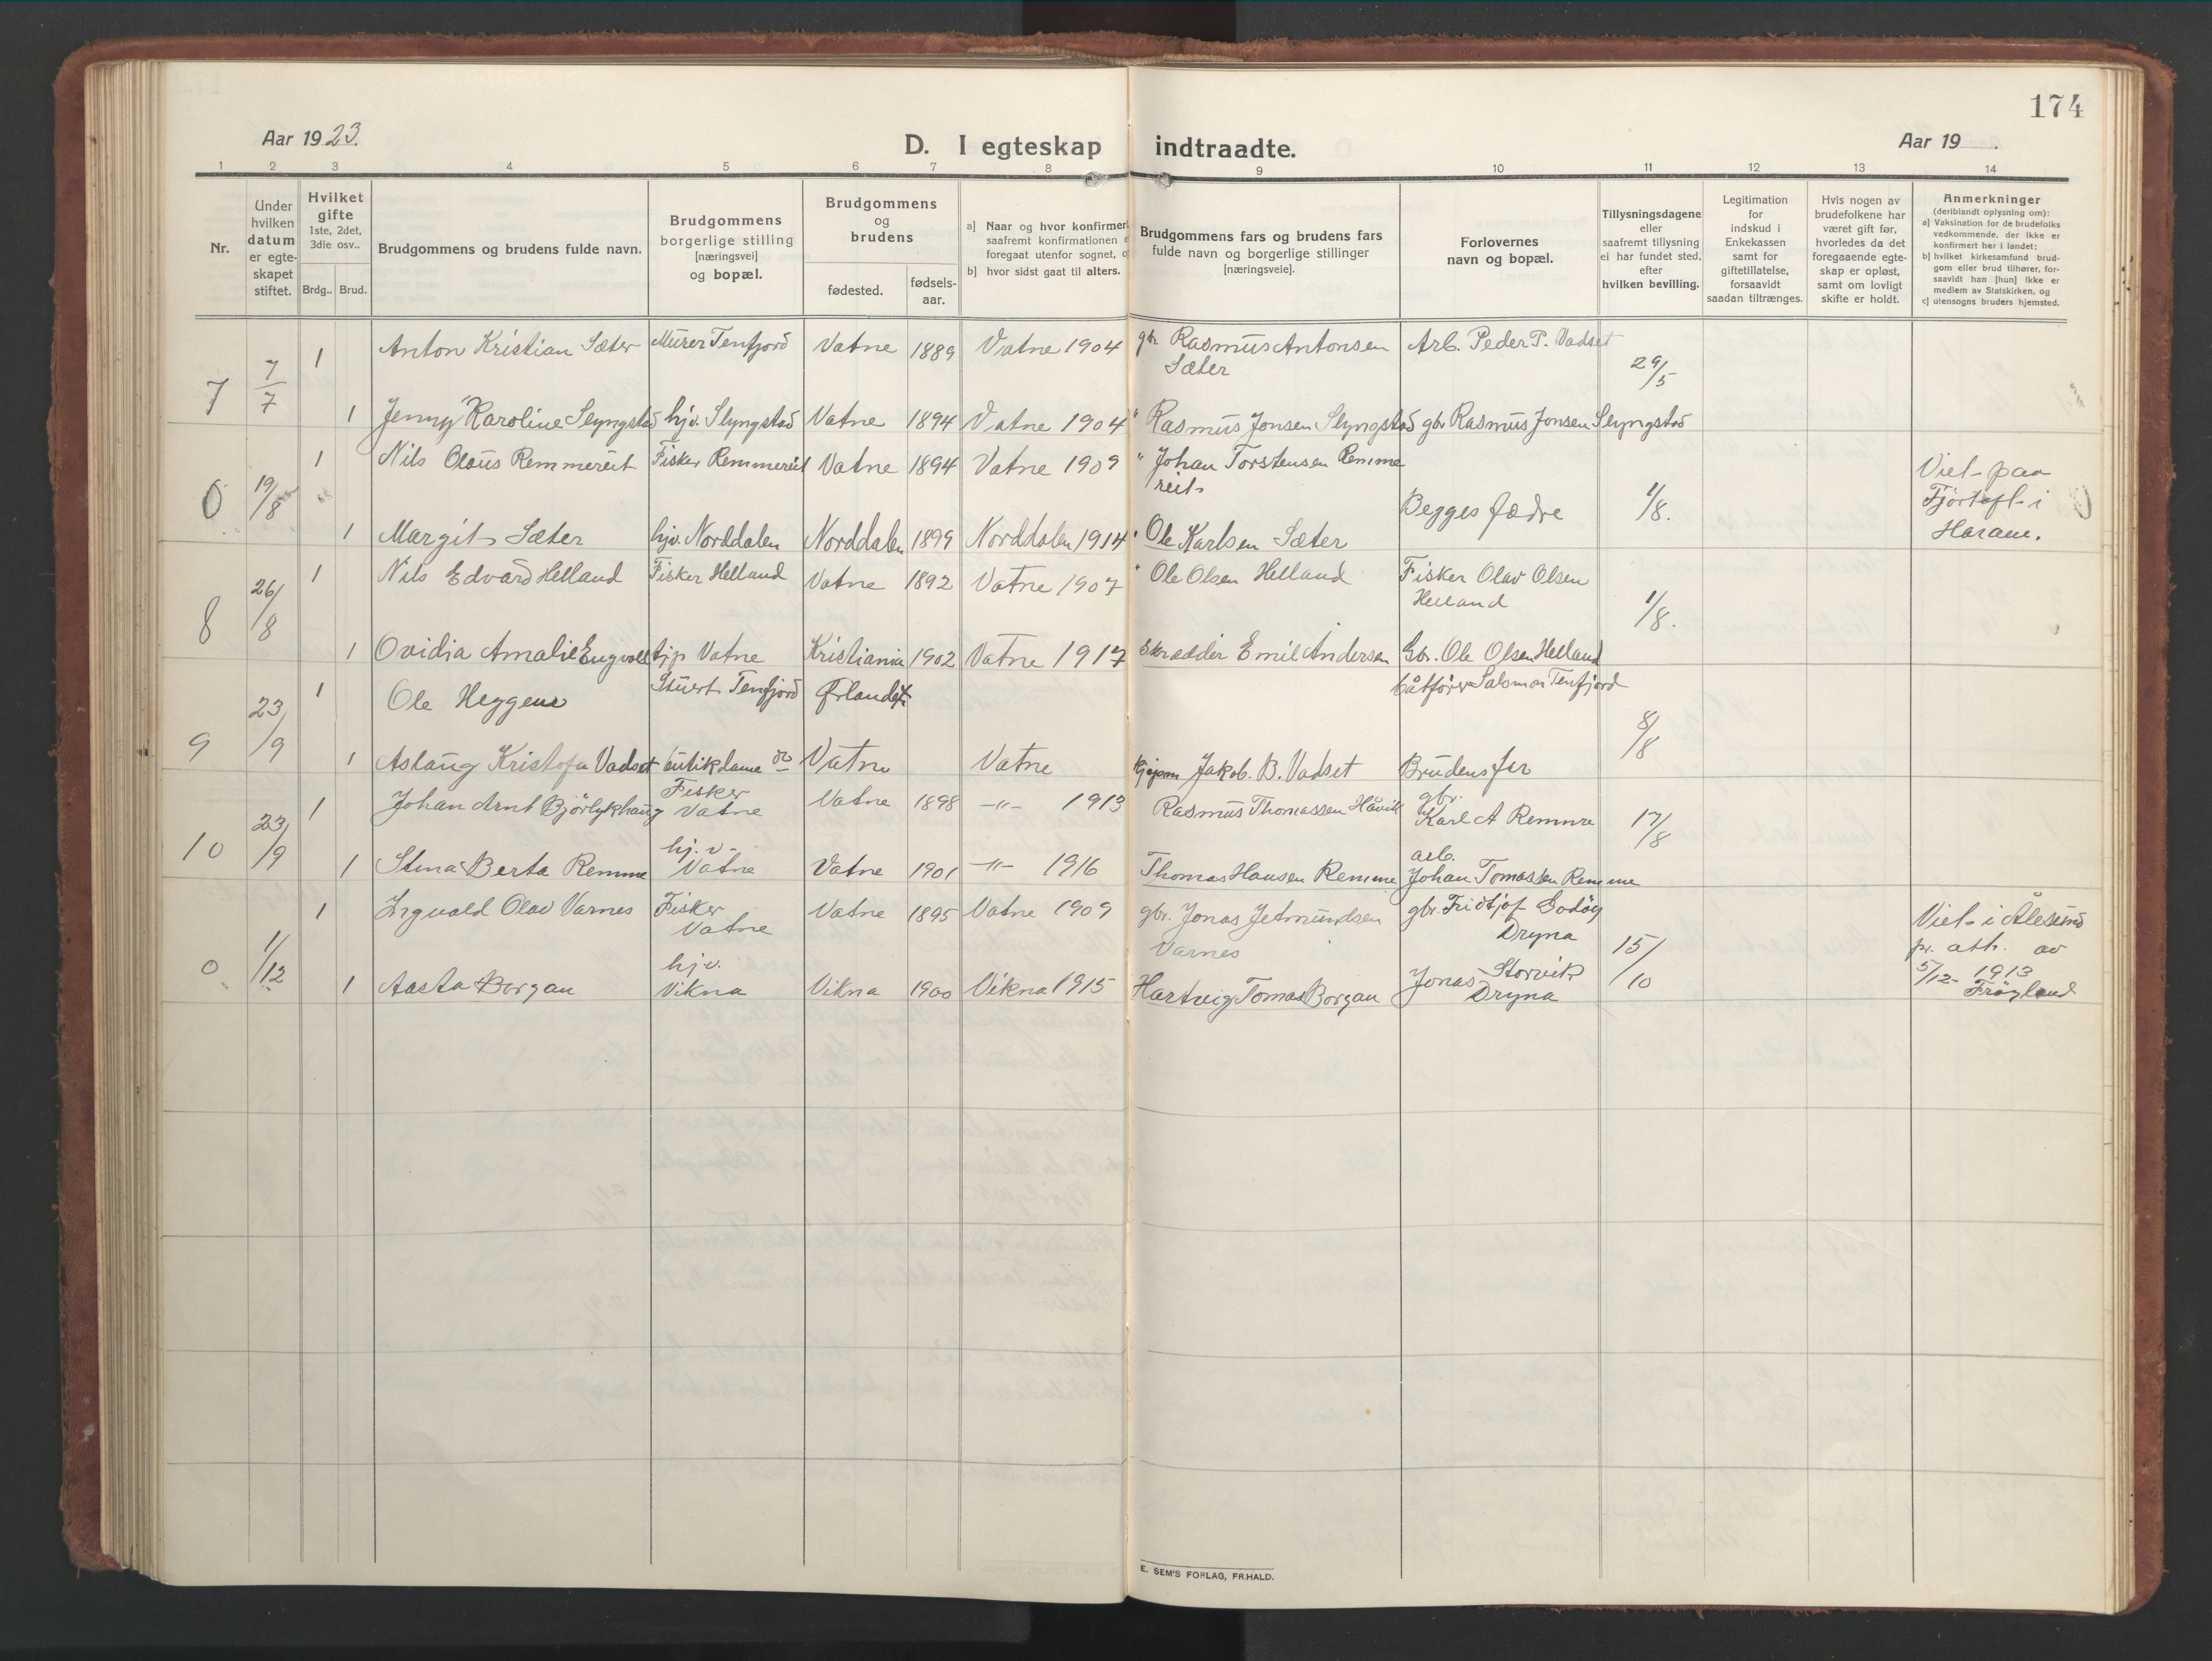 174
Aar 1923.
D. I egteskap indtraadte.
Aar 19 .
1 2 3 4 5 6 7 8 9 10 11 12 13 14
Nr.
Under
hvilken
datum
er egte-
skapet
stiftet.
Hvilket
gifte
1ste, 2det,
3die osv..
Brdg.. Brud.
Brudgommens og brudens fulde navn.
Brudgommens
borgerlige stilling
[næringsvei]
og bopæl.
Brudgommens
og
brudens
fødested.
fødsels-
aar.
a] Naar og hvor konfirmer
saafremt konfirmationen
foregaat utenfor sognet, o
b] hvor sidst gaat til alters.
Brudgommens fars og brudens fars
fulde navn og borgerlige stillinger
[næringsveie].
Forlovernes
navn og bopæl.
Tillysningsdagene
eller
saafremt tillysning
ei har fundet sted,
efter
hvilken bevilling.
Legitimation
for
indskud i
Enkekassen
samt for
giftetillatelse,
forsaavidt
saadan tiltrænges.
Hvis nogen av
brudefolkene har
været gift før,
hvorledes da det
foregaaende egte-
skap er opløst,
samt om lovligt
skifte er holdt.
Anmerkninger
(deriblandt oplysning om):
a] Vaksination for de brudefolks
vedkommende, der ikke er
konfirmert her i landet;
b] hvilket kirkesamfund brud-
gom eller brud tilhører, for-
saavidt han [hun] ikke er
medlem av Statskirken, og
c] utensogns bruders hjemsted.
7 7/7 1 Anton Kristian Sæter Murer Tenfjord Vatne 1889 Vatne 1904 gbr Rasmus Antonsen Arb. Peder P. Vadset
Sæter 29/5
1 Jenny Karoline Slyngstad hjv. Slyngstad Vatne 1894 Vatne 1904 " Rasmus Jonsen Slyngstad gbr Rasmus Jonsen Slyngstad
0 19/8 1 Nils Olaus Remmereit Fisker Remmereit Vatne 1894 Vatne 1909 " Johan Torstensen Remme
reit Begges fædre 1/8. Viet paa
Fjørtoft i
Haram.
1 Margit Sæter hjv. Norddalen Norddalen 1899 Norddalen 1914 " Ole Karlsen Sæter
8 26/8 1 Nils Edvard Helland Fisker Helland Vatne 1892 Vatne 1907 " Ole Olsen Helland Fisker Olav Olsen
Helland 1/8.
1 Ovidia Amalie Engvoll tjp Vatne Kristiania 1902 Vatne 1917 Skrædder Emil Andersen Gbr. Ole Olsen Helland
9 23/9 1 Ole Heggene Stuert Tenfjord Ørlandet båtfører Salomon Tenfjord
8/8
1 Aslaug Kristofa Vadset butikdame Vatne Vatne kjøpm Jakob. B. Vadset Brudens far
10 23/9 1 Johan Arnt Bjørlykhaug Fisker
Vatne Vatne 1898 -"- 1913 Rasmus Thomassen Håvik gbr.
Karl A Remme 17/8
1 Stina Berta Remme hj. v.
Vatne Vatne 1901 -"- 1916 Thomas Hansen Remme arb.
Johan Tomassen Remme
0 1/12 1 Ingvald Olav Varnes Fisker
Vatne Vatne 1895 Vatne 1909 gbr. Jonas Jetmundsen
Varnes gbr. Fridtjof Godøy
Dryna 15/10 Viet i Ålesund
pr. att. av
5/12- 1913
1 Aasta Borgan hjv.
Vikna Vikna 1900 Vikna 1915 Hartvig Tomas Borgan Jonas Storvik
Dryna
E. SEM'S FORLAG, FR.HALD.